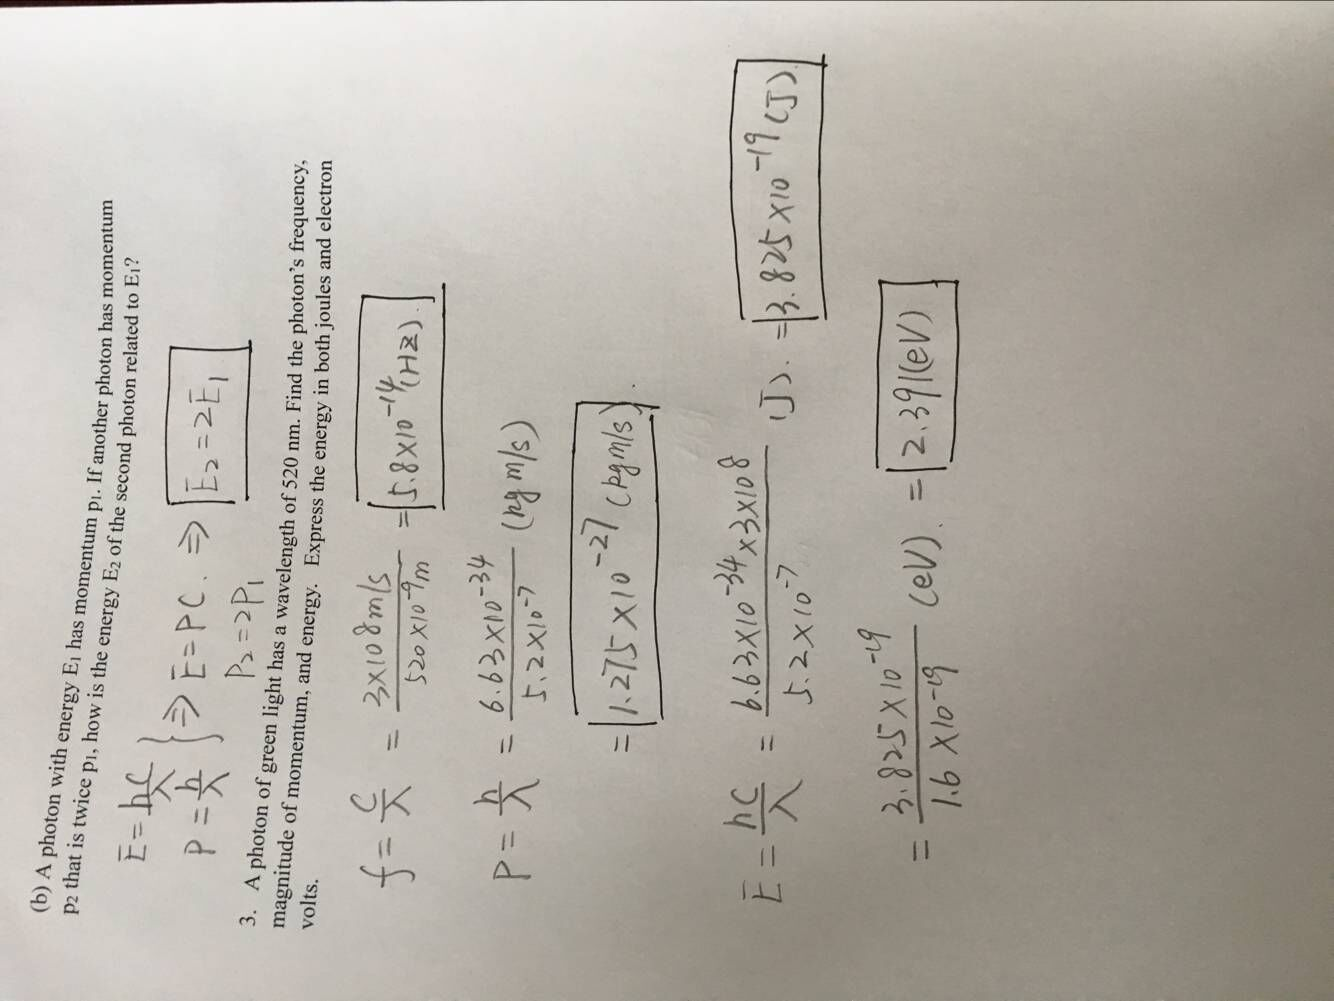 (b) A photon with energy E₁ has momentum p₁. If another photon has momentum
p₂ that is twice p₁, how is the energy E₂ of the second photon related to E₁?
E = hc/λ
P = h/λ
} ⇒ E = PC. ⇒ E₂ = 2E₁
P₂ = 2P₁
3. A photon of green light has a wavelength of 520 nm. Find the photon's frequency,
magnitude of momentum, and energy. Express the energy in both joules and electron
volts.
f = c/λ = 3×10⁸m/s / 520×10⁻⁹m = 5.8×10⁻¹⁴(HZ).
P = h/λ = 6.63×10⁻³⁴ / 5.2×10⁻⁷ (kg m/s)
= 1.275×10⁻²⁷ (kgm/s).
E = hc/λ = 6.63×10⁻³⁴×3×10⁸ / 5.2×10⁻⁷ (J). = 3.825×10⁻¹⁹(J).
= 3.825×10⁻¹⁹ / 1.6×10⁻¹⁹ (eV). = 2.391(eV)